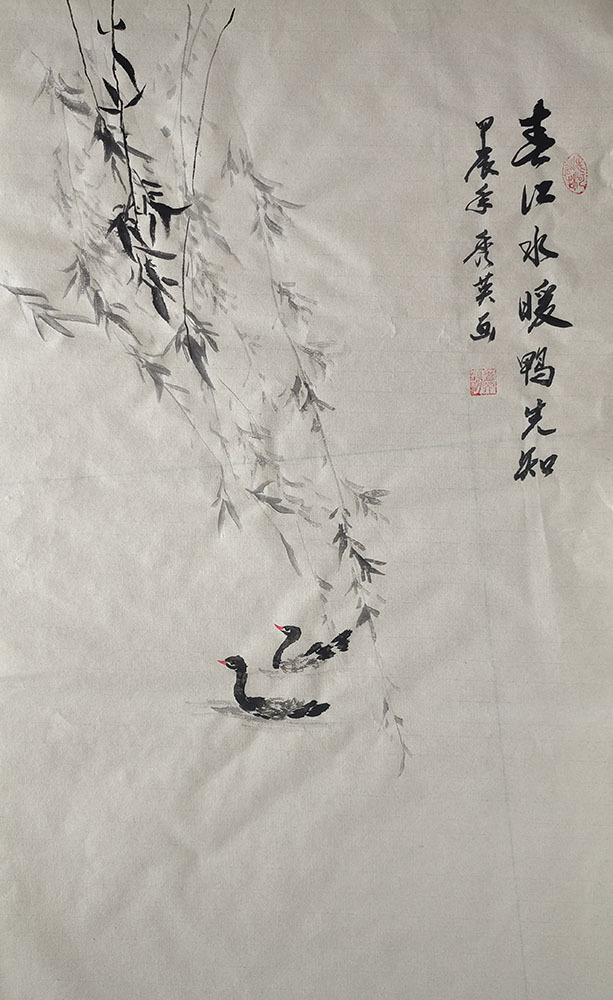 春江水暖鸭先知
甲辰年秀英画